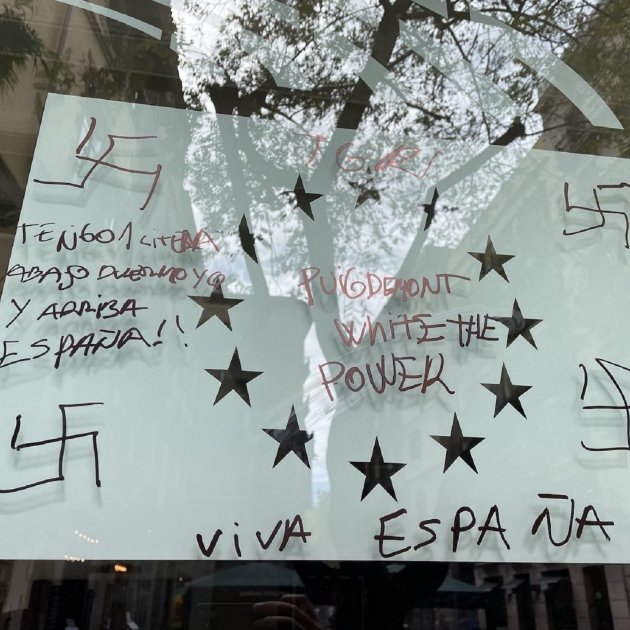 TENGO 1 LITERA
ABAJO DUERMO YO
Y ARRIBA
ESPAÑA!!
PUIGDEMONT
WHITE THE
POWER
VIVA ESPAÑA